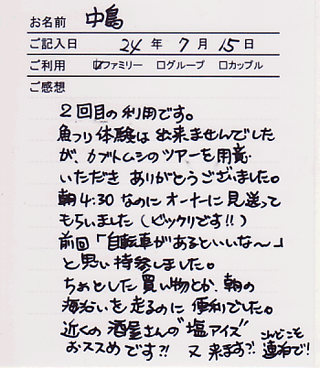 お名前 中島
ご記入日 24 年 7 月 15 日
ご利用 ☑ファミリー □グループ □カップル
ご感想
2回目の利用です。
魚つり体験は出来ませんでした
が、カブトムシのツアーを用意
いただき ありがとうございました。
朝4:30なのにオーナーに見送って
もらいました(ビックリです!!)
前回「自転車があるといいな〜」
と思い持参しました。
ちょっとした買い物とか、朝の
海沿いを走るのに便利でした。
近くの酒屋さんの"塩アイス"
おススメです?! 又来ます?! こんどこそ
連泊で!